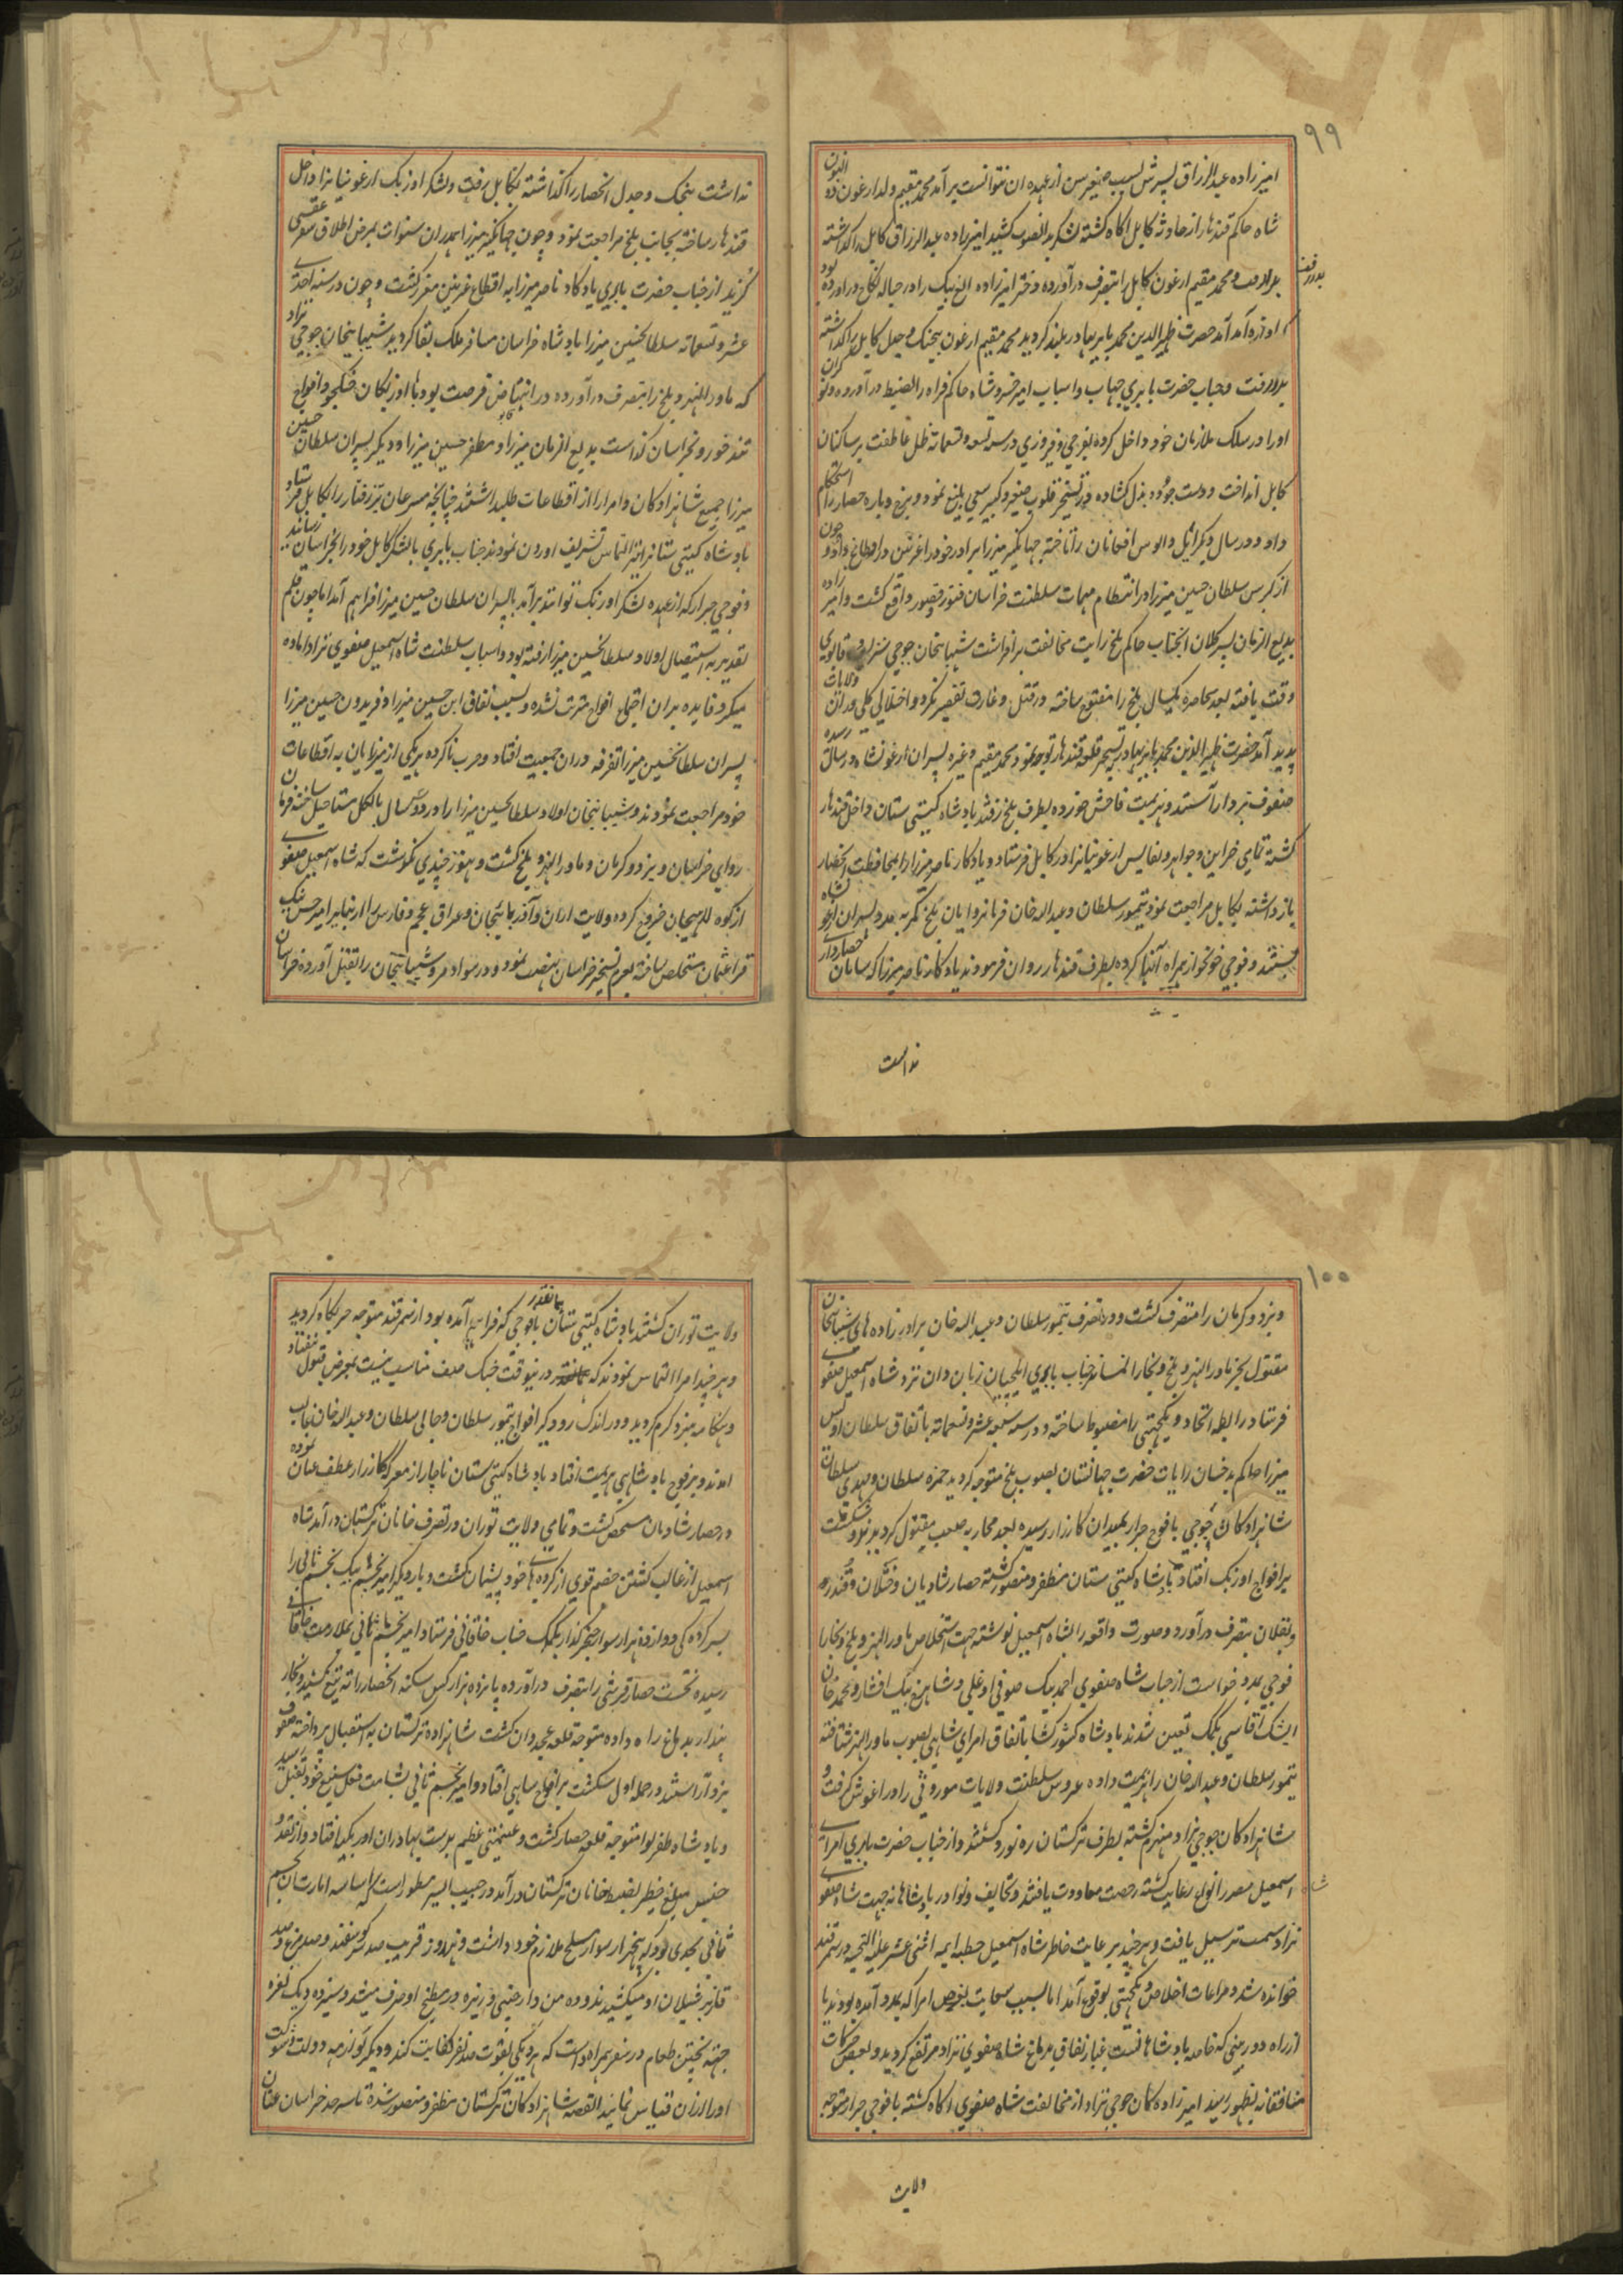 ۹۹
امیرزاده عبدالرزاق پسرش بسبب صغیر سن از عهده ان نتوانست برآمد محمد مقیم ولد ارغون ده النون
شاه حاکم قندهار از حادثه کابل اکاه کشته لشکر بدانصوب کشید امیرزاده عبدالرزاق کابل را کذاشته
بدر رفت و محمد مقیم ارغون کابل را بتصرف درآورده دختر امیرزاده الغ بیک را در حباله نکاح دراورده بود
اوازه آمد آمد حضرت ظهیرالدین محمد بابر بهادر بلند کردید محمد مقیم ارغون بیجنک و جدل کابل را کذاشته
بدر رفت و جناب حضرت بابری جهات و اسباب امیر خسرو شاه حاکم فراه را بضبط درآورده و نوکران
اورا در سلک ملازمان خود داخل کرده بفرخی و فیروزی در سنه تسعه و تسعمائه ظل عاطفت بر ساکنان
کابل انداخت و دست جود و بذل کشاده در تسخیر قلوب صغیر و کبیر سعی بلیغ نمود و برج و باره حصار را استحکام
داد و در سال دیکر ائل والوس افغانان را تاخته جهانکیر میرزا برادر خود را غزنین در اقطاع داد و چون
از کبر سن سلطان حسین میرزا در انتظام مهمات سلطنت خراسان فتور و قصور واقع کشت و امیرزاده
بدیع الزمان پسر کلان انجناب حاکم بلخ رایت مخالفت برافراشت شیبانیخان جوجی نژاد قابوی
وقت یافته بعد محاصره یکسال بلخ را مفتوح ساخته در قتل و غارت تقصیر نکرد و اختلالی کلی دران ولایات
پدید آمد حضرت ظهیرالدین محمد بابر بهادر بتسخیر قلعه قندهار توجه نمود محمد مقیم و غیره پسران ارغونشاه در رسالت رسیده
صفوف نبرد آراستند و هزیمت فاحش خورده بطرف بلخ رفتند بادشاه کیتی ستان داخل قندهار
کشته تمامی خزاین و جواهر و نفایس ارغونیانرا در کابل فرستاد و یادکار ناصر میرزا را بمحافظت انحصار
بازداشته بکابل مراجعت نمود تیمور سلطان و عبدالله خان فرمانروایان بلخ کمر بمدد پسران ارغو نشاه
بستند و فوجی خونخوار همراه آنها کرده بطرف قندهار روان فرمودند یادکار ناصر میرزا که سامان حصارداری
نداشت
نداشت بیجنک و جدل انحصار را کذاشته بکابل رفت و لشکر اوزبک ارغونیانرا داخل
قندهار ساخته بجانب بلخ مراجعت نمود و چون جهانکیر میرزا همدران سنوات بمرض اطلاق سفر عقبی
کزید از جناب حضرت بابری یادکار ناصر میرزا به اقطاع غزنین مقرر کشت و چون در سنه احدی
عشر و تسعمائه سلطانحسین میرزا بادشاه خراسان مسافر ملک بقا کردید شیبانیخان جوجی نژاد
که ماورالنهر و بلخ را بتصرف درآورده در انتهاض فرصت بود با اوزبکان جنکجو و افواج
تندخو رو بخراسان کذاشت بدیع الزمان میرزا و مظفر حسین میرزا و دیکر پسران سلطان حسین
میرزا جمیع شاهزادکان و امرا را از اقطاعات طلبداشتند چنانچه مسرعان تیزرفتار را بکابل فرستاده
بادشاه کیتی ستانرا نیز التماس تشریف اوردن نمودند جناب بابری با لشکر کابل خود را بخراسان رسانید
و فوجی جرار که از عهده لشکر اوزبک توانند برآمد با پسران سلطان حسین میرزا فراهم آمد اما چون قلم
تقدیر به استیصال اولاد سلطانحسین میرزا رفته بود و اسباب سلطنت شاه اسمعیل صفوی نژاد اماده
میکرد فایده بران اجتماع افواج مترتب نشده و بسبب نفاق ابن حسین میرزا و فریدون حسین میرزا
پسران سلطانحسین میرزا تفرقه دران جمعیت افتاد و حرب ناکرده هر یکی از میرزایان به اقطاعات
خود مراجعت نمودند و شیبانیخان اولاد سلطانحسین میرزا را در دو سال بالکل مستاصل ساخته فرمان
روای خراسان و یزد و کرمان و ماورالنهر و بلخ کشت و هنوز چندی نکذشت که شاه اسمعیل صفوی
از کوه للهیجان خروج کرده ولایت اران و آذربایجان و عراق عجم و فارس را از نبایر امیر حسن بیک
قراعثمان مستخلص ساخته بعزم تسخیر خراسان نهضت نمود و در سواد مرو شیبانیخان را بقتل آورده خراسان
۱۰۰
و یزد و کرمان را متصرف کشت و در تصرف تیمور سلطان و عبدالله خان برادرزاده های شیبانیخان
مقتول بجز ماورالنهر و بلخ و بخارا نماند جناب بابری ایلچیان زبان دان نزد شاه اسمعیل صفوی
فرستاد رابطه اتحاد و یکجهتی را مضبوط ساخته و در سنه سبعه عشر و تسعمائه باتفاق سلطان اویس
میرزا حاکم بدخشان رایات حضرت جهانستان بصوب بلخ متوجه کردید حمزه سلطان و مهدی سلطان
شاهزادکان جوجی با فوج جرار بمیدان کارزار رسیده بعد محاربه صعب مقتول کردیدند و شکست
بر افواج اوزبک افتاد بادشاه کیتی ستان مظفر و منصور کشته حصار شادیان و ختلان و قندز
و بقلان بتصرف درآورد و صورت واقعه را بشاه اسمعیل نوشته جهت استخلاص ماورالنهر و بلخ و بخارا
فوجی بمدد خواست از جناب شاه صفوی احمد بیک صوفی اوغلی و شاهرخ بیک افشار و محمد خان
ایشک اقاسی بکمک تعین شدند بادشاه کشورکشا باتفاق امرای شاهی بصوب ماورالنهر شتافته
تیمور سلطان و عبدالله خان را هزیمت داده عروس سلطنت ولایات موروثی را در اغوش کرفت و
شاهزادکان جوجی نژاد منهزم کشته بطرف ترکستان ره نورد کشتند و از جناب حضرت بابری امرای
اسمعیل مصدر انواع رعایت کشته رخصت معاودت یافتند و تحایف و نوادر بادشاهانه جهت شاه صفوی
نژاد سمت ترسیل یافت و هرچند برعایت خاطر شاه اسمعیل خطبه ایمه اثنی عشر علیه التحیه در سمرقند
خوانده شد و مراعات اخلاص و یکجهتی بوقوع آمد اما بسبب سعایت بعرض امرا که بمدد آمده بودند یا
از راه دوربینی که خاصه بادشاهانست غبار نفاق بدماغ شاه صفوی نژاد مرتفع کردید و بعضی حرکات
منافقانه بظهور رسید امیرزاده کان جوجی نژاد از مخالفت شاه صفوی اکاه کشته با فوجی جرار متوجه
ولایت
ولایت توران کشتند بادشاه کیتی ستان بافوجی که فراهم آمده بود از سمرقند متوجه حربکاه کردید
و هرچند امرا التماس نمودند که بمانقدر درینوقت جنک صف مناسب نیست بمعرض قبول نیفتاد
و هنکامه نبرد کرم کردید و در اندک رودکیر افواج تیمور سلطان و جانی سلطان و عبدالله خان غالب
امدند و بر فوج بادشاهی هزیمت افتاد بادشاه کیتی ستان ناچار از معرکه کارزار عطف عنان نموده
در حصار شادمان متحصن کشت و تمامی ولایت توران در تصرف خانان ترکستان درآمد شاه
اسمعیل از غالب کشتن خصم قوی از کرده های خود پشیمان کشت و بار دیکر امیر نجم بیک نجم ثانی را
بسرکردکی دوازده هزار سوار خنجرکذار بکمک جناب خاقانی فرستاد امیر نجم ثانی بملازمت خاقانی
رسیده نخست حصار قرشی را بتصرف درآورده پانزده هزار کس سکنه انحصار را ته تیغ کشید و بخار
پندار بدماغ راه داده متوجه قلعه غجدوان کشت شاهزاده ترکستان به استقبال پرداخته صفوف
نبرد آراستند و در حمله اول شکست بر افواج شاهی افتاد و امیر نجم ثانی بشامت فعل شنیع خود بقتل رسید
و بادشاه ظفر لوا متوجه قلعه حصار کشت و غنیمتی عظیم بدست بهادران اوزبکیه افتاد و از نقد و
جنس مبلغ خطیر بضبط خانان ترکستان درآمد در حبیب السیر مسطور است که اساسه امارت امیر نجم
ثانی بحدی بود که پنجهزار سوار مسلح ملازم خود داشت و هرروز قریب صد سر کوسفند و صد مرغ و صد
قاز بر شیلان او میکشیدند و ده من دارچینی و زیره در مطبخ او صرف میشد و سیزده دیک نقره
جهته پختن طعام در سفر همراه داشت که هر دیکی بقوت صد نفر کفایت کند و دیکر لوازمه دولت و شوکت
او را ازان قیاس نمایند القصه شاهزادکان ترکستان مظفر و منصور شده تا سرحد خراسان عنان